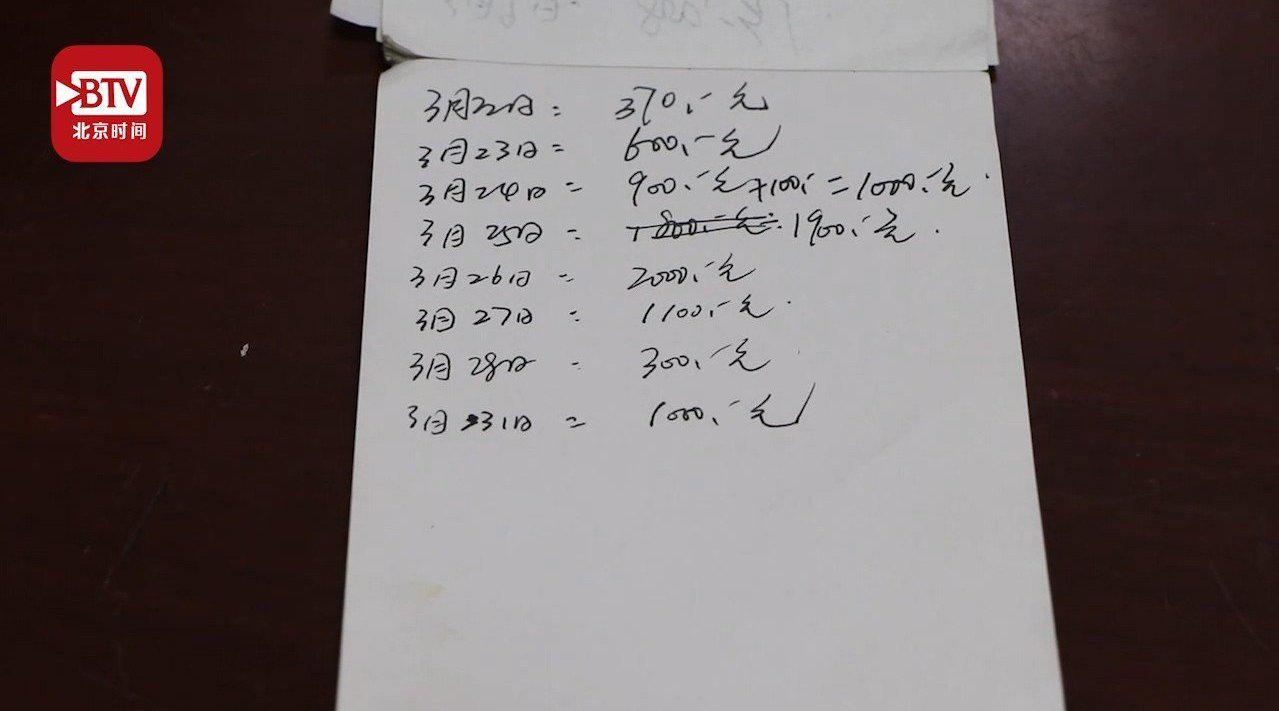 BTV
北京时间
3月22日: 370.-元
3月23日= 600.-元
3月24日= 900.-元+100.-=1000.-元.
3月25日= 1800.-元. 1900.-元.
3月26日= 2000.-元
3月27日: 1100.-元.
3月28日: 300.-元.
3月31日= 1000.-元